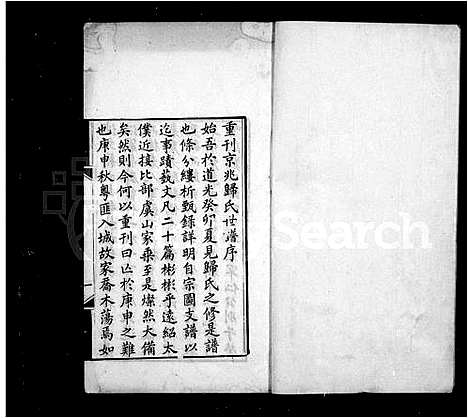 重刊京兆歸氏世譜序
始吾於道光癸卯夏見歸氏之修是譜
也條分縷析甄錄詳明自宗圖支譜以
迄事蹟藝文凡二十篇彬彬乎遠紹太
僕近接比部虞山家乘至是燦然大備
矣然則今何以重刊曰亡於庚申之難
也庚申秋粵匪入城故家喬木蕩焉如